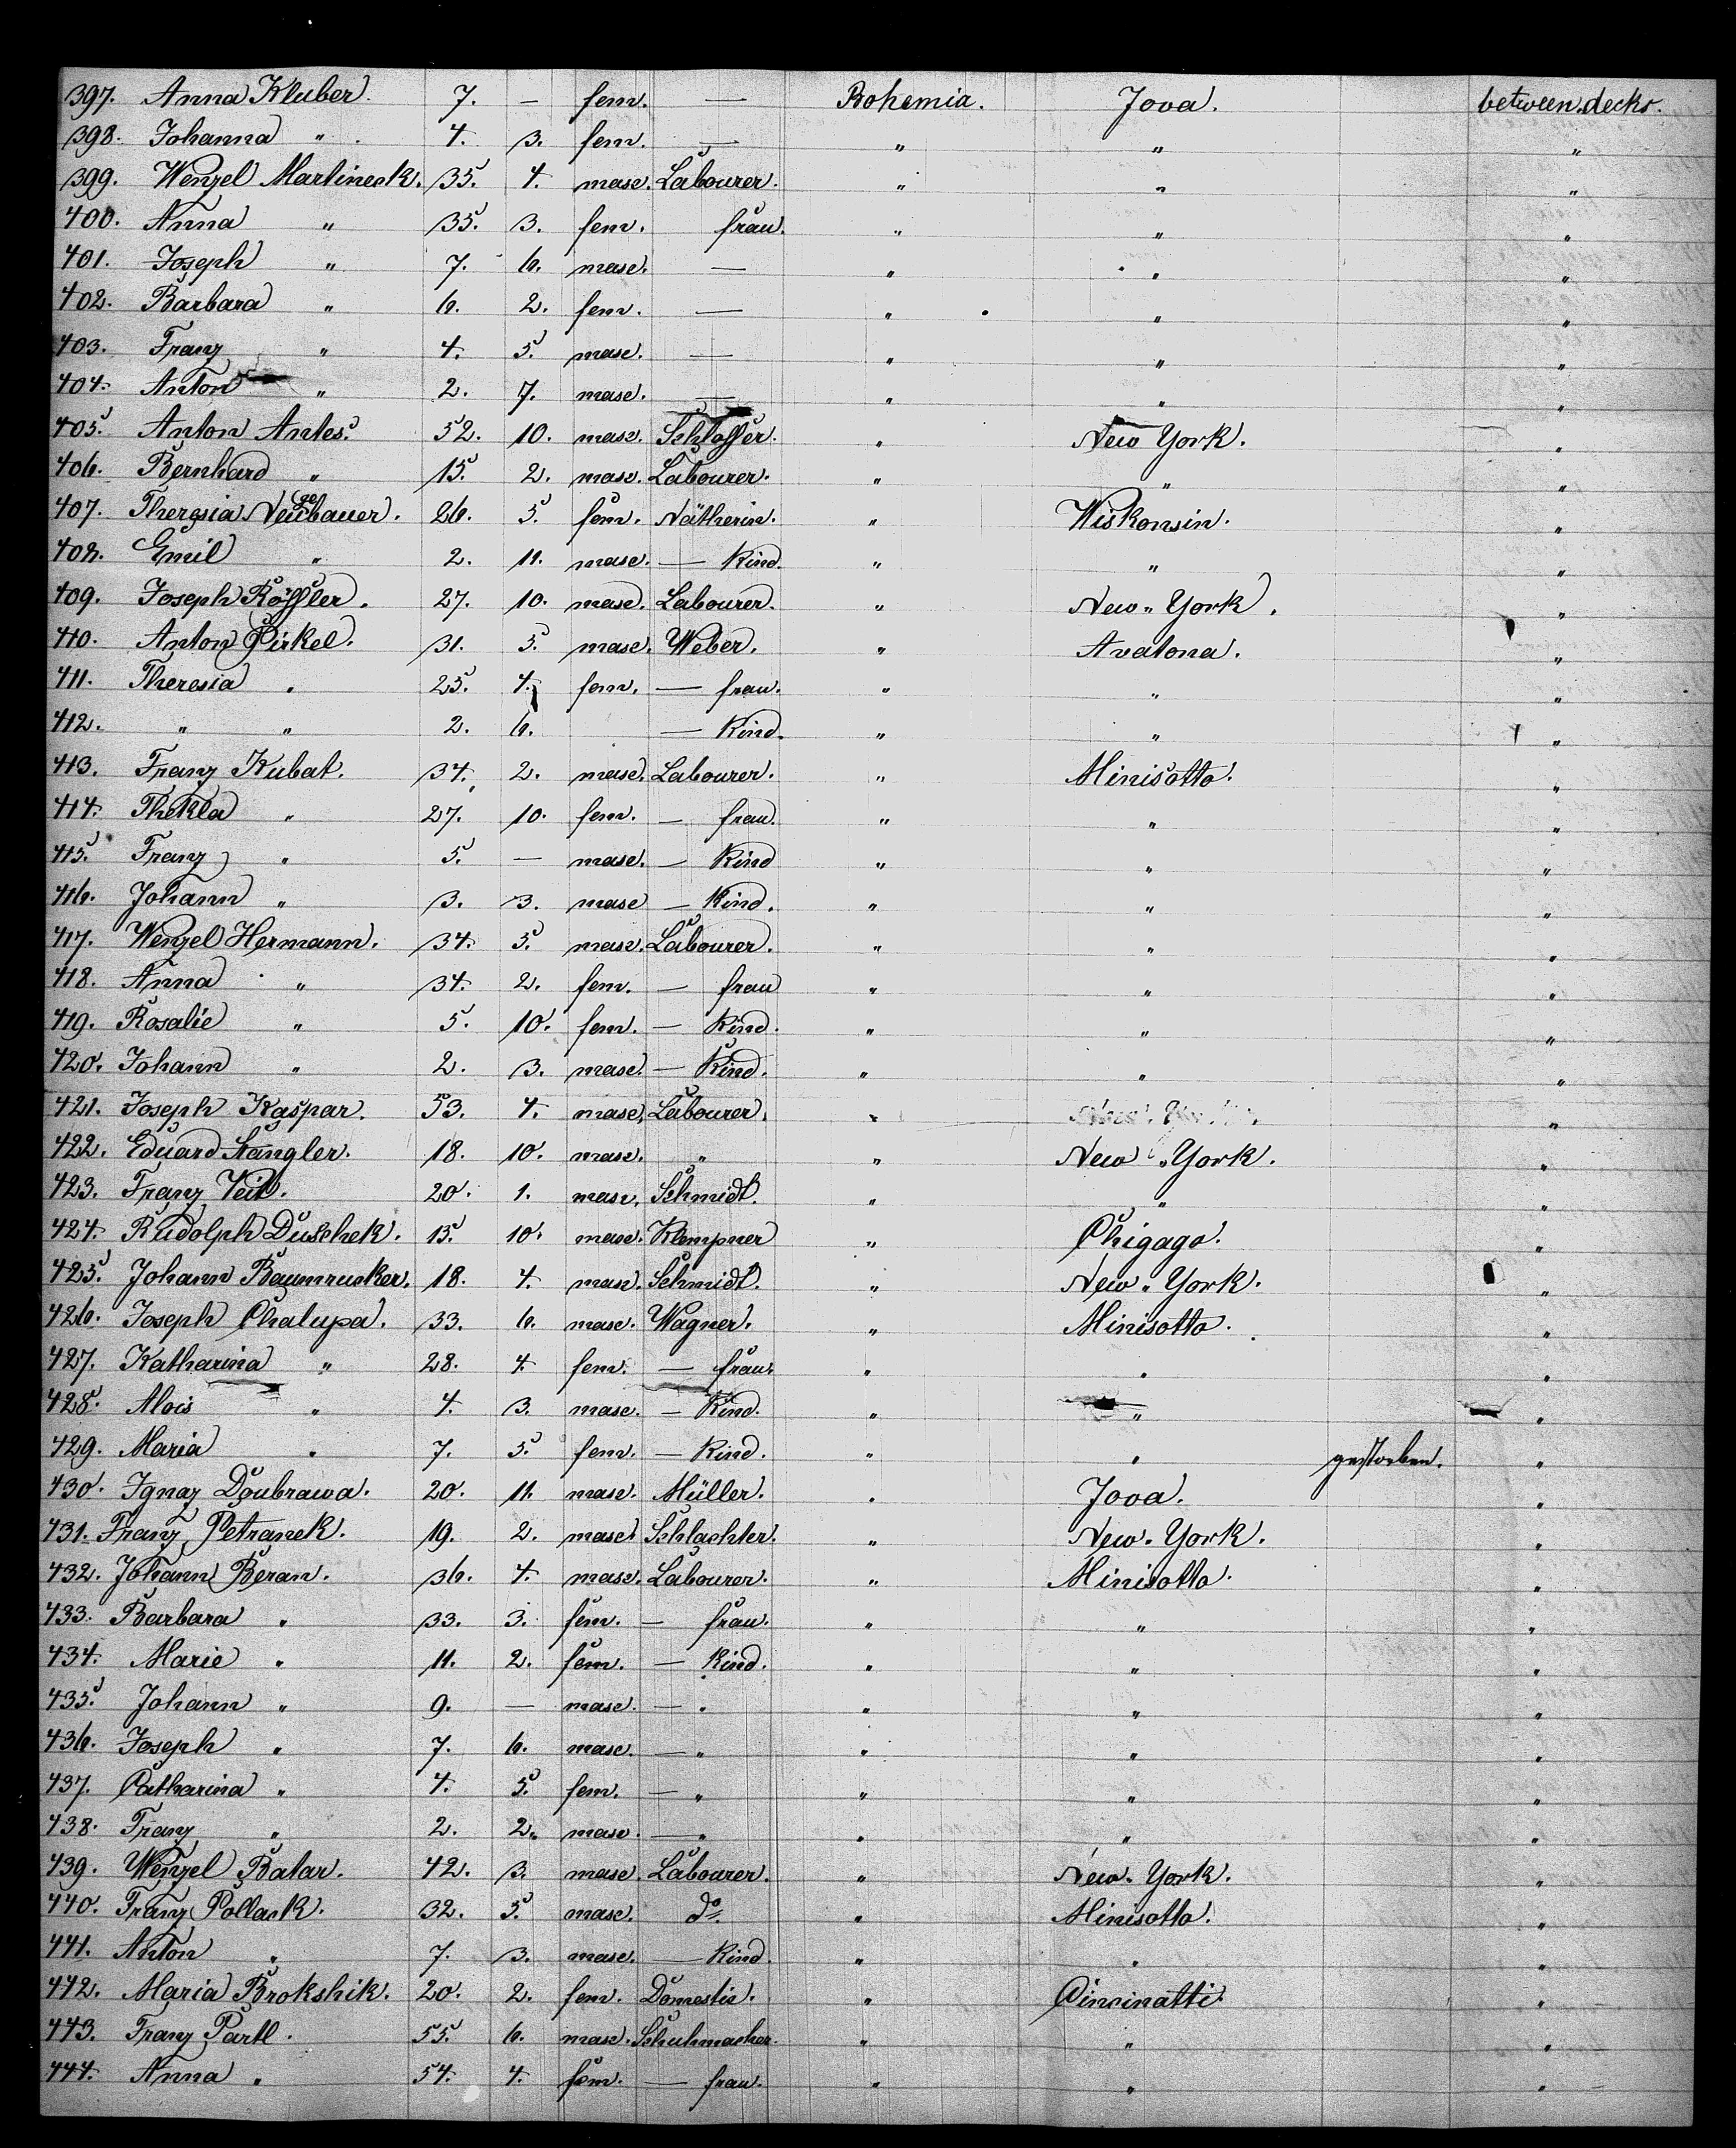 397. Anna Kluber. 7. — fem. — Bohemia. Jova. between decks.
398. Johanna " 4. 3. fem. — " " "
399. Wenzel Martineck. 35. 4. masc. Labourer. " " "
400. Anna " 35. 3. fem. frau. " " "
401. Joseph " 7. 6. masc. — " " "
402. Barbara " 6. 2. fem. — " " "
403. Franz " 4. 5. masc. — " " "
404. Anton " 2. 7. masc. — " " "
405. Anton Antes. 52. 10. masc. Schlosser. " New York. "
406. Bernhard " 15. 2. masc. Labourer. " " "
407. Theresia Neubauer. 26. 5. fem. Nätherin. " Wiskonsin. "
408. Emil " 2. 11. masc. — Kind. " " "
409. Joseph Rössler. 27. 10. masc. Labourer. " New-York. "
410. Anton Pirkel. 31. 5. masc. Weber. " Avatona. "
411. Theresia " 25. 4. fem. — frau. " " "
412. " " 2. 6. — Kind. " " "
413. Franz Kubat. 34. 2. masc. Labourer. " Minisotto. "
414. Thekla " 27. 10. fem. — frau. " " "
415. Franz " 5. — masc. — Kind " " "
416. Johann " 3. 3. masc — Kind. " " "
417. Wenzel Hermann. 34. 5. masc. Labourer. " " "
418. Anna " 34. 2. fem. — frau " " "
419. Rosalie " 5. 10. fem. — Kind. " " "
420. Johann " 2. 3. masc. — Kind. " " "
421. Joseph Kaspar. 53. 4. masc. Labourer. " "
422. Eduard Stangler. 18. 10. masc. " " New-York. "
423. Franz Veit. 20. 1. masc. Schmidt. " " "
424. Rudolph Duschek. 15. 10. masc. Klempner " Chigago. "
425. Johann Baumrucker. 18. 4. masc. Schmidt. " New-York. "
426. Joseph Chalupa. 33. 6. masc. Wagner. " Minisotto. "
427. Katharina " 28. 4. fem. — frau. " " "
428. Alois " 4. 3. masc. — Kind. " " "
429. Maria " 7. 5. fem. — Kind. " " gestorben. "
430. Ignaz Doubrawa. 20. 11. masc. Müller. " Jova. "
431. Franz Petranek. 19. 2. masc. Schlachter. " New-York. "
432. Johann Beran. 36. 4. masc. Labourer. " Minisotto. "
433. Barbara " 33. 3. fem. — frau. " " "
434. Marie " 11. 2. fem. — Kind. " " "
435. Johann " 9. — masc. — " " " "
436. Joseph " 7. 6. masc. — " " " "
437. Catharina " 4. 5. fem. — " " " "
438. Franz " 2. 2. masc. — " " " "
439. Wenzel Balar. 42. 3. masc. Labourer. " New-York. "
440. Franz Pollack. 32. 5. masc. do. " Minisotto. "
441. Anton " 7. 3. masc. — Kind. " " "
442. Maria Brokshik. 20. 2. fem. Domestic. " Cincinatti. "
443. Franz Partl. 55. 6. masc. Schuhmacher. " " "
444. Anna " 54. 4. fem. — frau. " " "